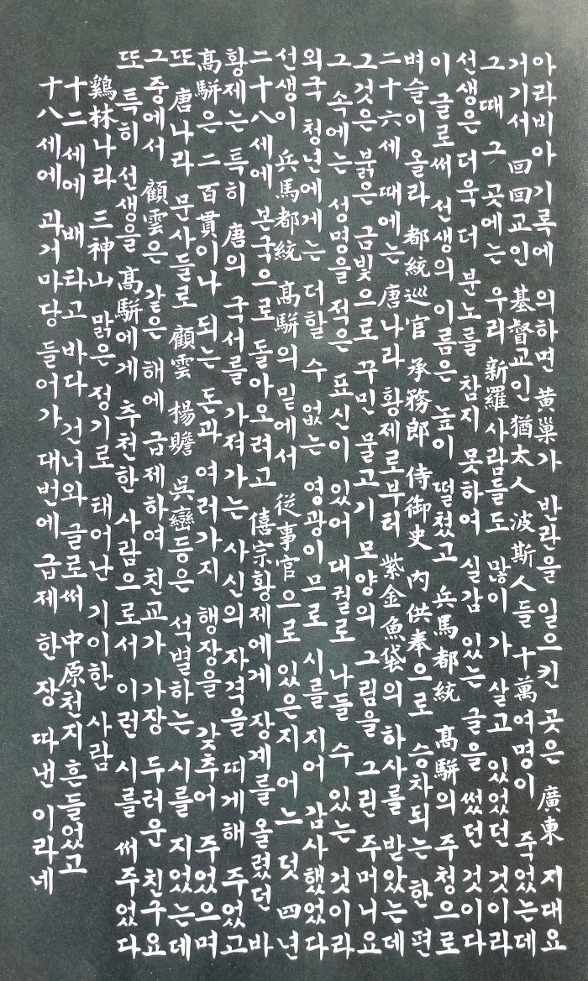 아라비아 기록에 의하면 黃巢가 반란을 일으킨 곳은 廣東 지대요
거기서 回回교인 基督교인 猶太人 波斯人들 十萬여명이 죽었는데
그때 그 곳에는 우리 新羅 사람들도 많이 가 살고 있었던 것이라
선생은 더욱 더 분노를 참지 못하여 실감 있는 글을 썼던 것이다
이 글로써 선생의 이름은 높이 떨쳤고 兵馬都統 高騈의 주청으로
벼슬이 올라 都統巡官 承務郎 侍御史 內供奉으로 승차되는 한편
二十六세 때에는 唐나라 황제로부터 紫金魚袋의 하사를 받았는데
그것은 붉은 금빛으로 꾸민 물고기 모양의 그림을 그린 주머니요
그 속에는 성명을 적은 표신이 있어 대궐로 나들 수 있는 것이라
외국 청년에게는 더할 수 없는 영광이므로 시를 지어 감사했었다
선생이 兵馬都統 高騈의 밑에서 從事官으로 있은지 어느덧 四년
二十八세에 본국으로 돌아오려고 僖宗황제에게 장계를 올렸던 바
황제는 특히 唐의 국서를 가져가는 사신의 자격을 띠게해 주었고
高騈은 二百貫이나 되는 돈과 여러가지 행장을 갖추어 주었으며
또 唐나라 문사들로 顧雲 楊贍 吳巒등은 석별하는 시를 지었는데
그중에서 顧雲은 같은 해에 급제하여 친교가 가장 두터운 친구요
또 특히 선생을 高騈에게 추천한 사람으로서 이런 시를 써주었다
鷄林나라 三神山 맑은 정기로 태어난 기이한 사람
十二세에 배 타고 바다 건너와 글로써 中原천지 흔들었고
十八세에 과거마당 들어가 대번에 급제 한장 따낸 이라네